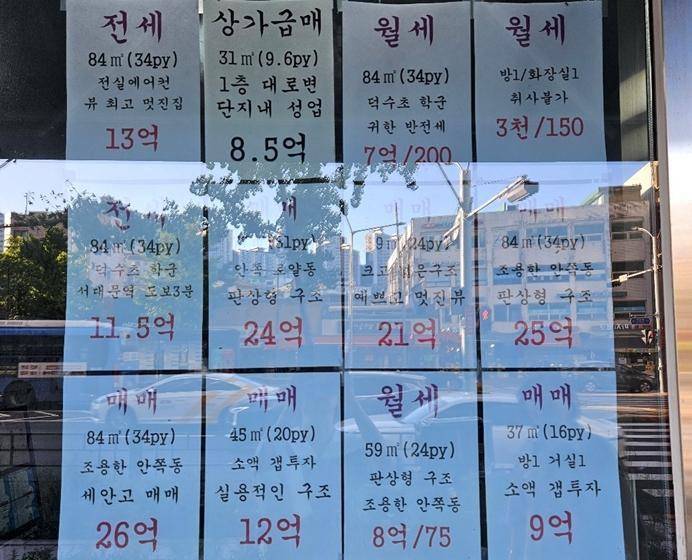 전세
84㎡(34py)
전실에어컨
뷰 최고 멋진집
13억
상가급매
31㎡(9.6py)
1층 대로변
단지내 성업
8.5억
월세
84㎡(34py)
덕수초 학군
귀한 반전세
7억/200
월세
방1/화장실1
취사불가
3천/150
전세
84㎡(34py)
덕수초 학군
서대문역 도보3분
11.5억
매매
안쪽 로얄동
판상형 구조
24억
매매
예쁘고 멋진뷰
21억
매매
84㎡(34py)
조용한 안쪽동
판상형 구조
25억
매매
84㎡(34py)
조용한 안쪽동
세안고 매매
26억
매매
45㎡(20py)
소액 갭투자
실용적인 구조
12억
월세
59㎡(24py)
판상형 구조
조용한 안쪽동
8억/75
매매
37㎡(16py)
방1 거실1
소액 갭투자
9억